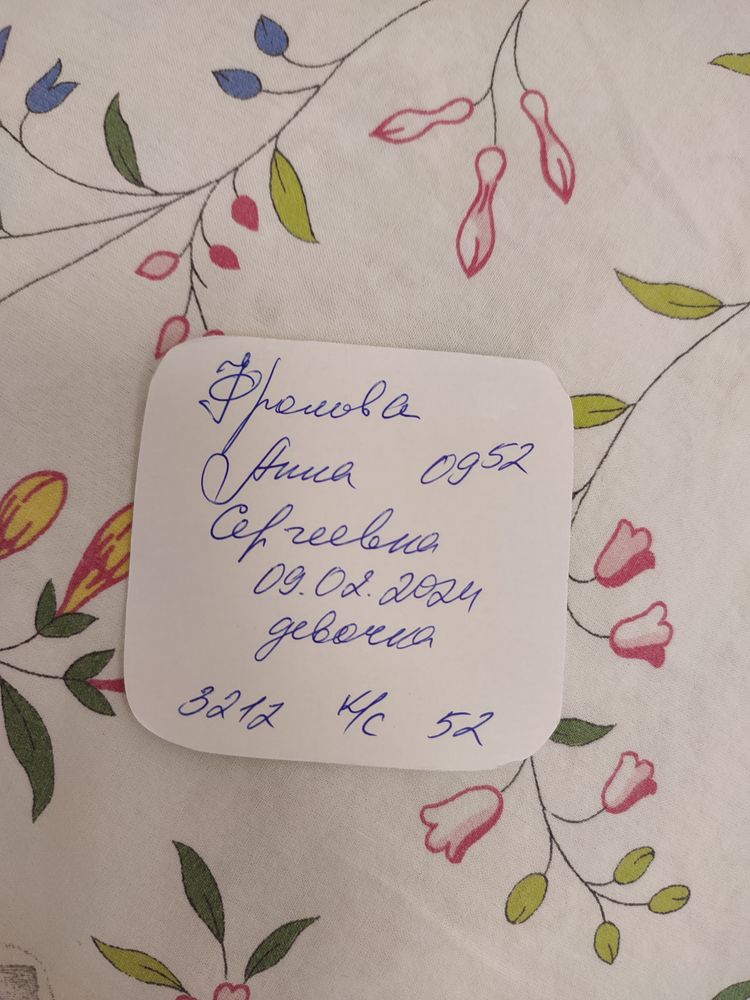 Фролова
Анна 09⁵²
Сергеевна
09.02.2024
девочка
3212 к/с 52